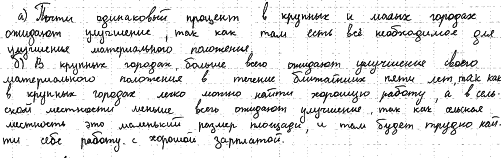 а) Почти одинаковый процент в крупных и малых городах
ожидают улучшение, так как там есть всё необходимое для
улучшения материального положения.
б) В крупных городах, больше всего ожидают улучшения своего
материального положения в течение ближайших пяти лет, так как
в крупных городах легко можно найти хорошую работу, а в сель-
ской местности меньше всего ожидают улучшение, так как сельская
местность это маленький размер площади, и там будет трудно най-
ти себе работу с хорошей зарплатой.